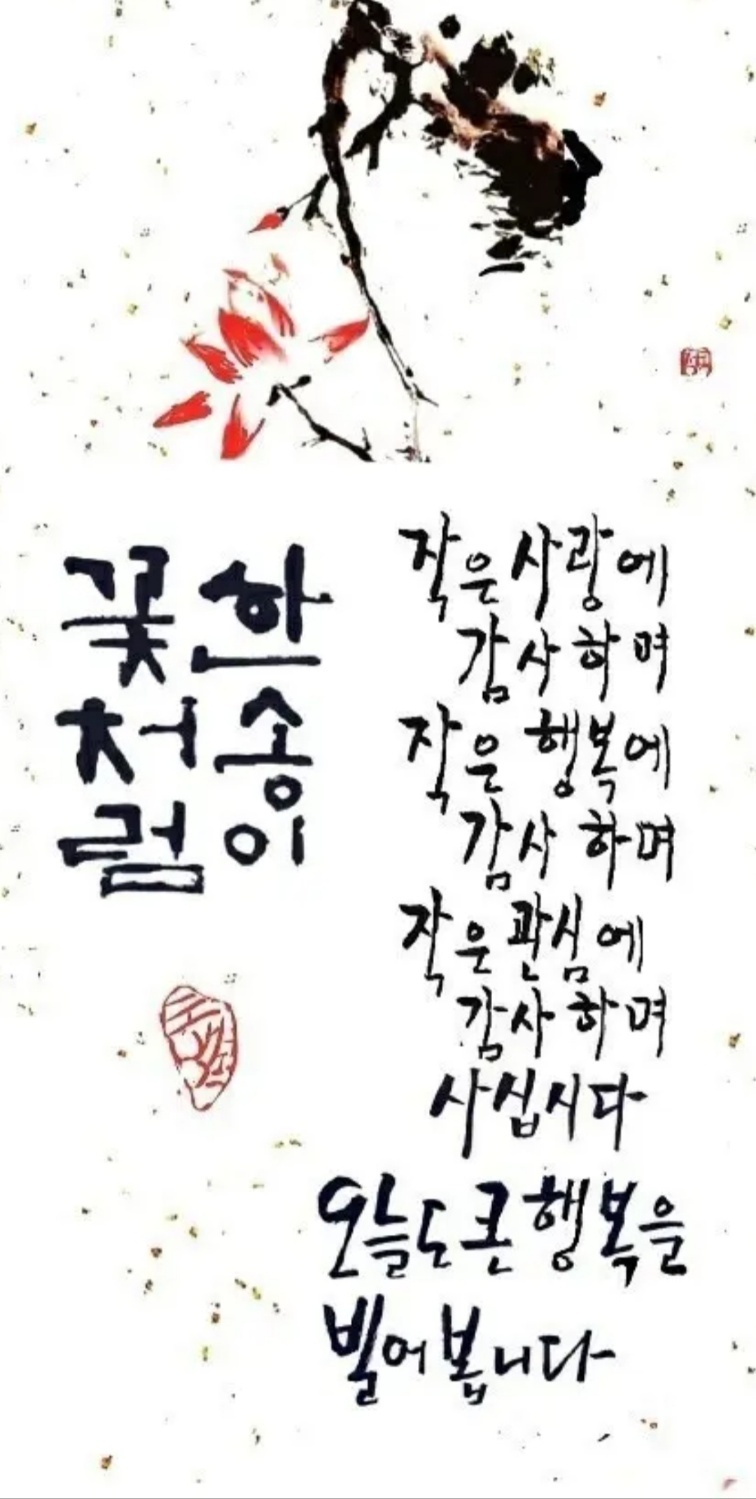 한송이
꽃처럼
작은 사랑에
감사하며
작은 행복에
감사하며
작은 관심에
감사하며
사십시다
오늘도 큰 행복을
빌어봅니다